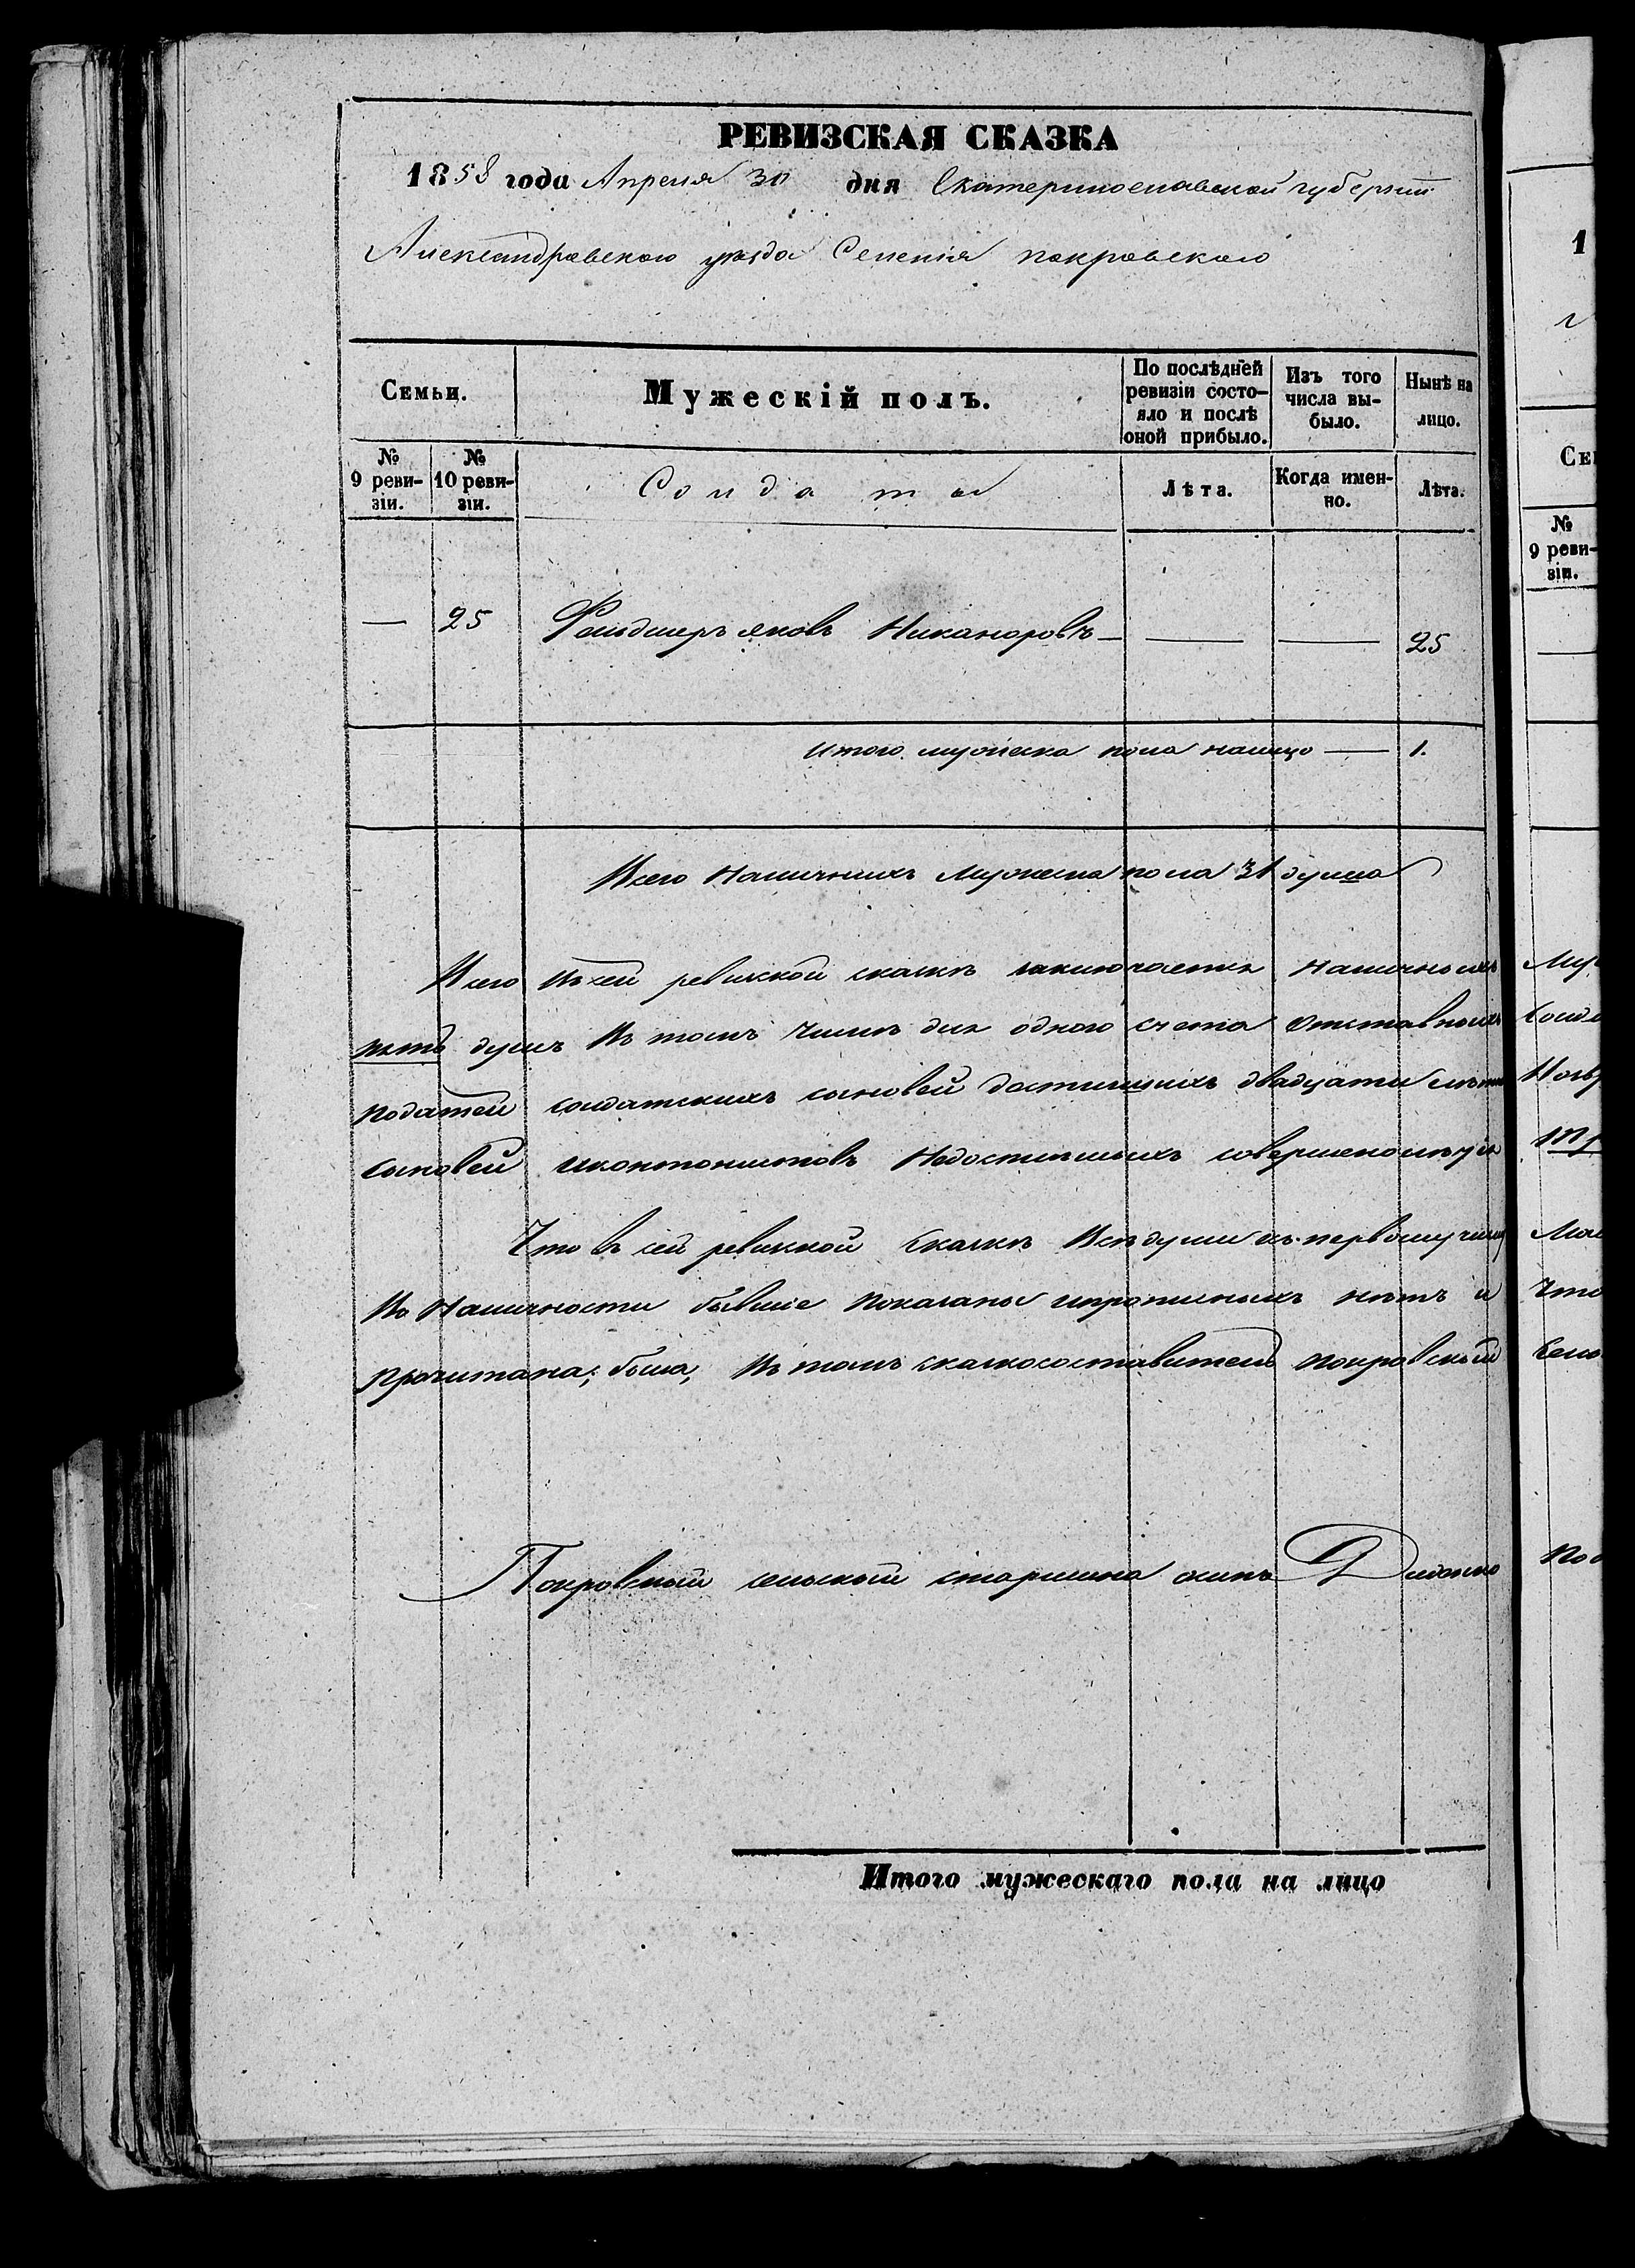 РЕВИЗСКАЯ СКАЗКА
1858 года Апреля 30 дня Екатеринославской губерніи
Александровского уезда Селенія покровского
Семьи.
Мужескій полъ.
По послѣдней ревизіи состо-
яло и послѣ
оной прибыло.
Изъ того
числа вы-
было.
Нынѣ на
лицо.
№
9 реви-
зіи.
№
10 реви-
зіи.
Солдаты
Лѣта.
Когда имен-
но.
Лѣта.
— 25 Фельдшеръ яковъ Никаноровъ — — — 25
Итого мужеска пола налицо — 1.
Всего Наличныхъ Мужеска пола 31 душа
Всего Въ сей ревизкой сказкѣ заключается Наличныхъ
пять душъ Въ томъ Числѣ для одного счета Отставныхъ
податей солдатскихъ сыновей достигшихъ двадцати
сыновей икантонистовъ Недостигшихъ
Что въ сей ревизкой Сказкѣ Всѣ души къ первому числу
Въ Наличности бывшіе Показаны ипрописныхъ нѣтъ и
прочитана, была, Въ томъ сказкосоставитель покровскый
Покровскый сельскый старшина осипъ
Итого мужескаго пола на лицо
1
Се
№
9 реви-
зіи.
Что